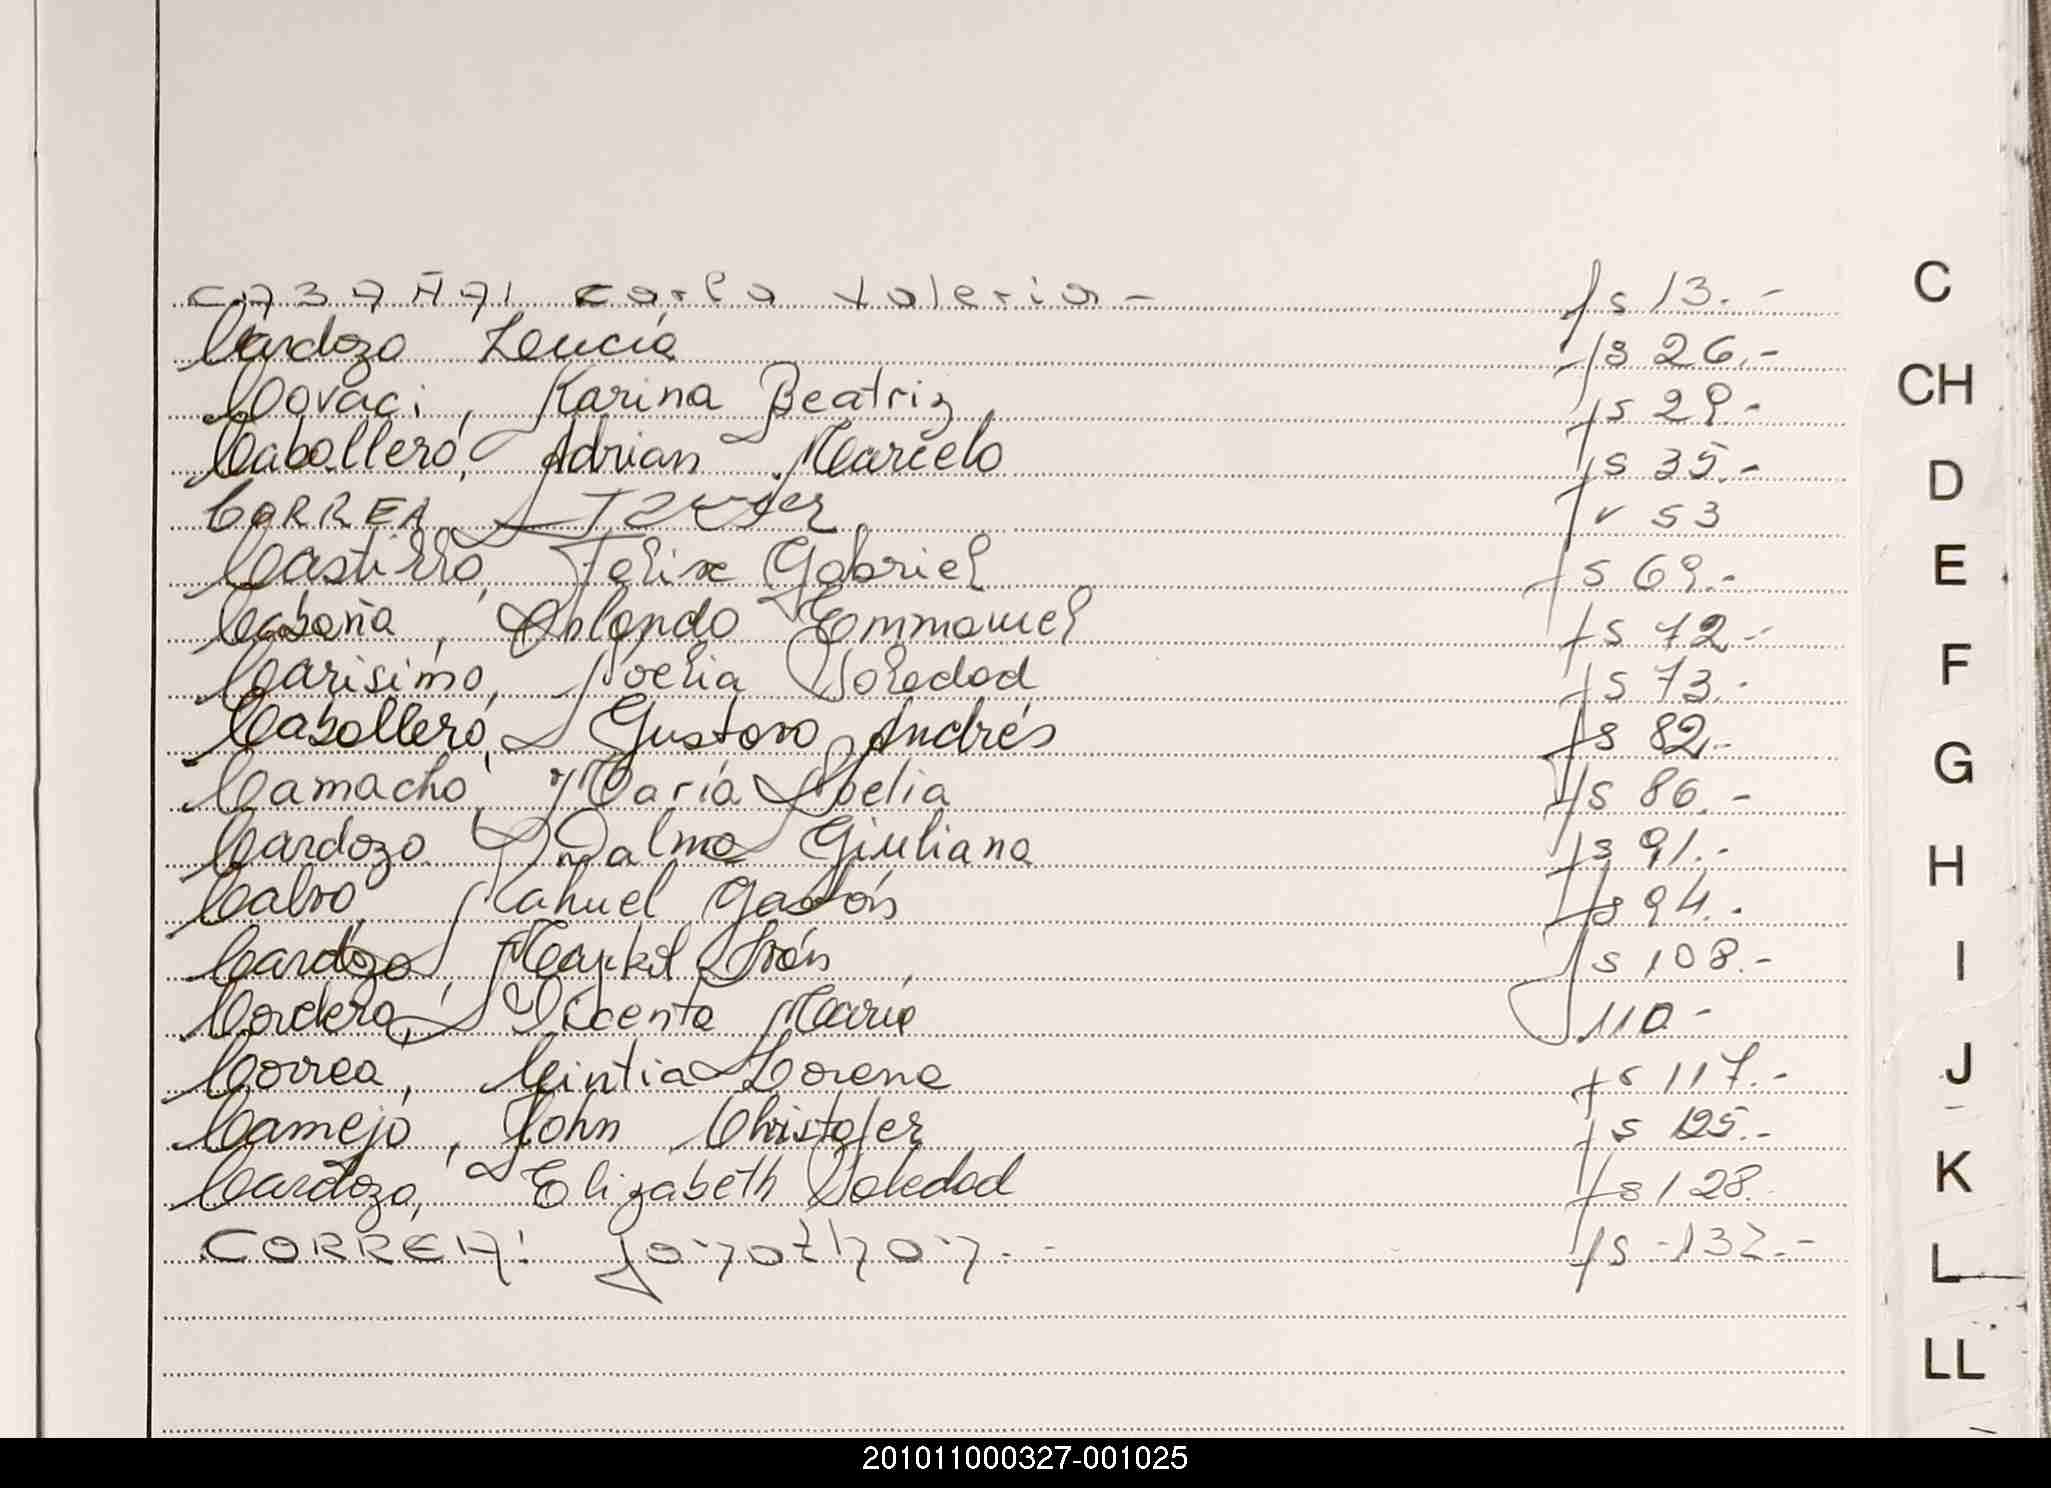 CABAÑA, Carla Valeria - fs 13.-
Cardozo Lucía fs 26.-
Covaci, Karina Beatriz, fs 29.-
Caballero, Adrian Marcelo fs 35.-
CORREA, 53
Castillo, Felix Gabriel fs 69.-
Cabaña, Orlando Emmanuel fs 72.-
Carisimo, Noelia Soledad fs 73.-
Caballero, Gustavo Andrés fs 82.-
Camacho, María Noelia fs 86.-
Cardozo Dalma Giuliana fs 91.-
Calvo, Nahuel Gastón fs 94.-
Cardozo, Maykel Iván fs 108.-
Cordero, Vicenta María f 110-
Correa, Cintia Lorena fs 117.-
Camejo, John Christofer fs 125.-
Cardozo, Elizabeth Soledad fs 128.
CORREA: Jonathan.- fs -132.-
C
CH
D
E
F
G
H
I
J
K
L
LL
201011000327-001025